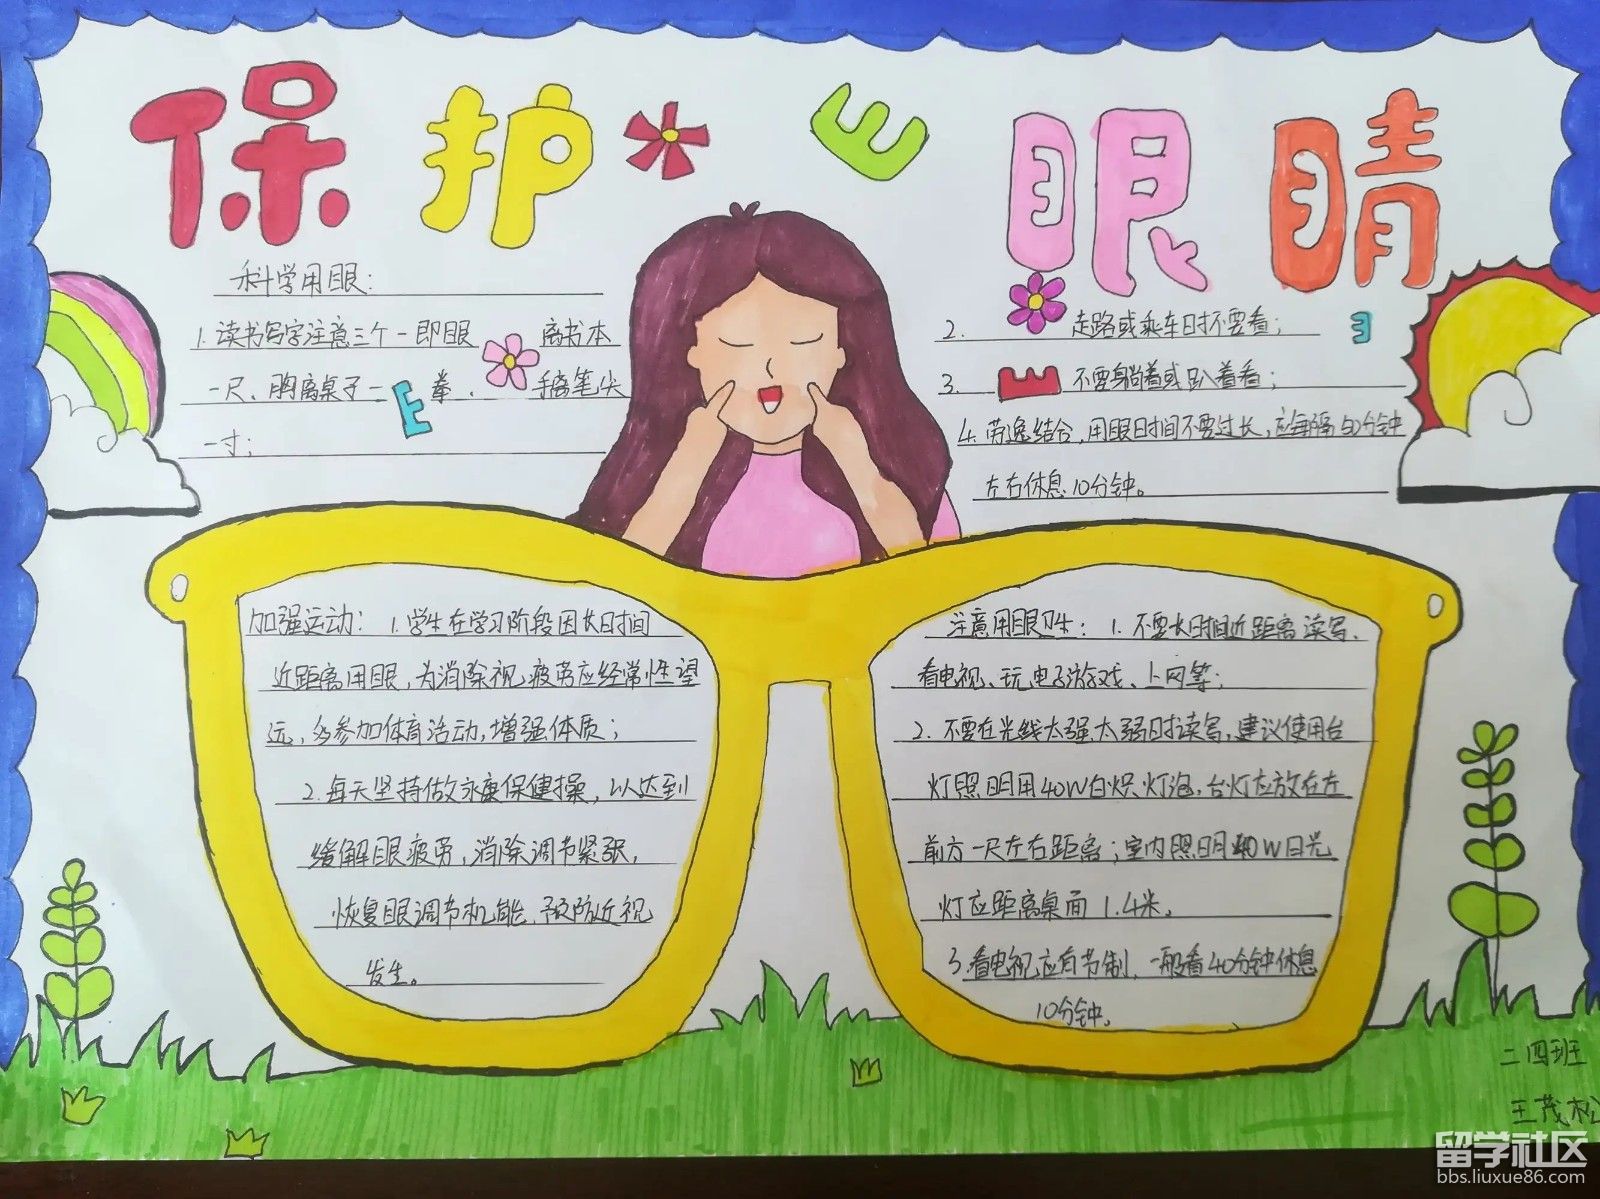 保护眼睛
科学用眼:
1.读书写字注意三个一即眼离书本
一尺、胸离桌子一拳,手离笔尖
一寸;
2. 走路或乘车时不要看;
3. 不要躺着或趴着看;
4.劳逸结合,用眼时间不要过长,应每隔50分钟
左右休息10分钟。
加强运动: 1.学生在学习阶段因长时间
近距离用眼,为消除视疲劳应经常性望
远,多参加体育活动,增强体质;
2.每天坚持做永康保健操,以达到
缓解眼疲劳,消除调节紧张,
恢复眼调节机能,预防近视
发生。
注意用眼卫生: 1.不要长时间近距离读写、
看电视、玩电子游戏、上网等;
2.不要在光线太强太弱时读写,建议使用台
灯照明用40W白炽灯泡,台灯应放在左
前方一尺左右距离;室内照明40W日光
灯应距离桌面1.4米。
3.看电视应有节制,一般看40分钟休息
10分钟。
二四班
王茂松
留学社区
bbs.liuxue86.com